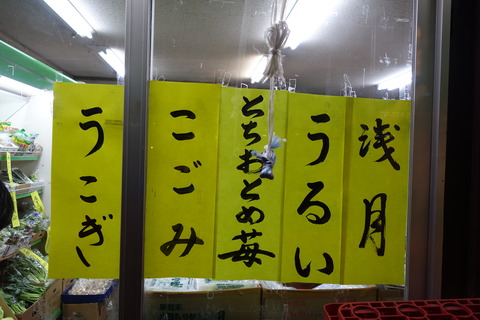 浅月
うるい
とちおとめ苺
こごみ
うこぎ